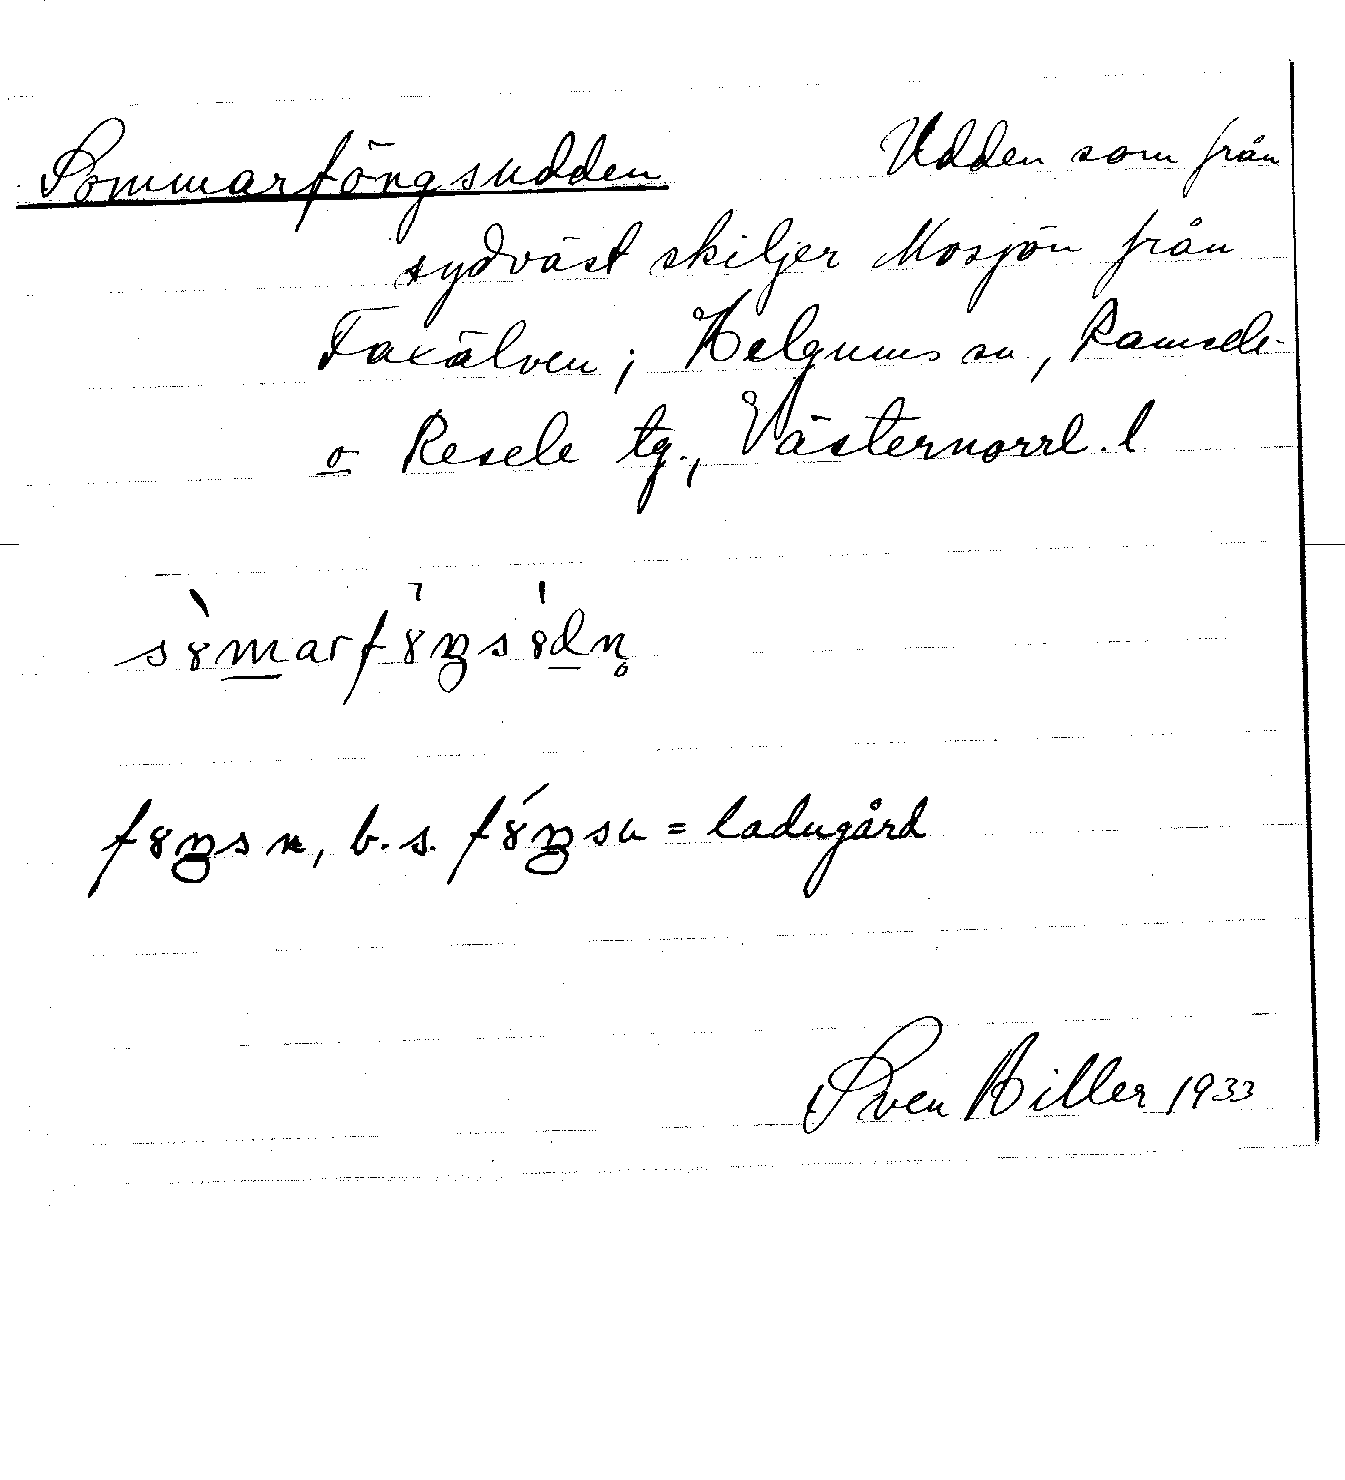 Sommarföngsudden Udden som från
sydväst skiljer Mosjön från
Faxälven; Helgums sn, Ramsele-
o Resele tg., Västernorrl. l
ladugård
Sven Hiller 1933